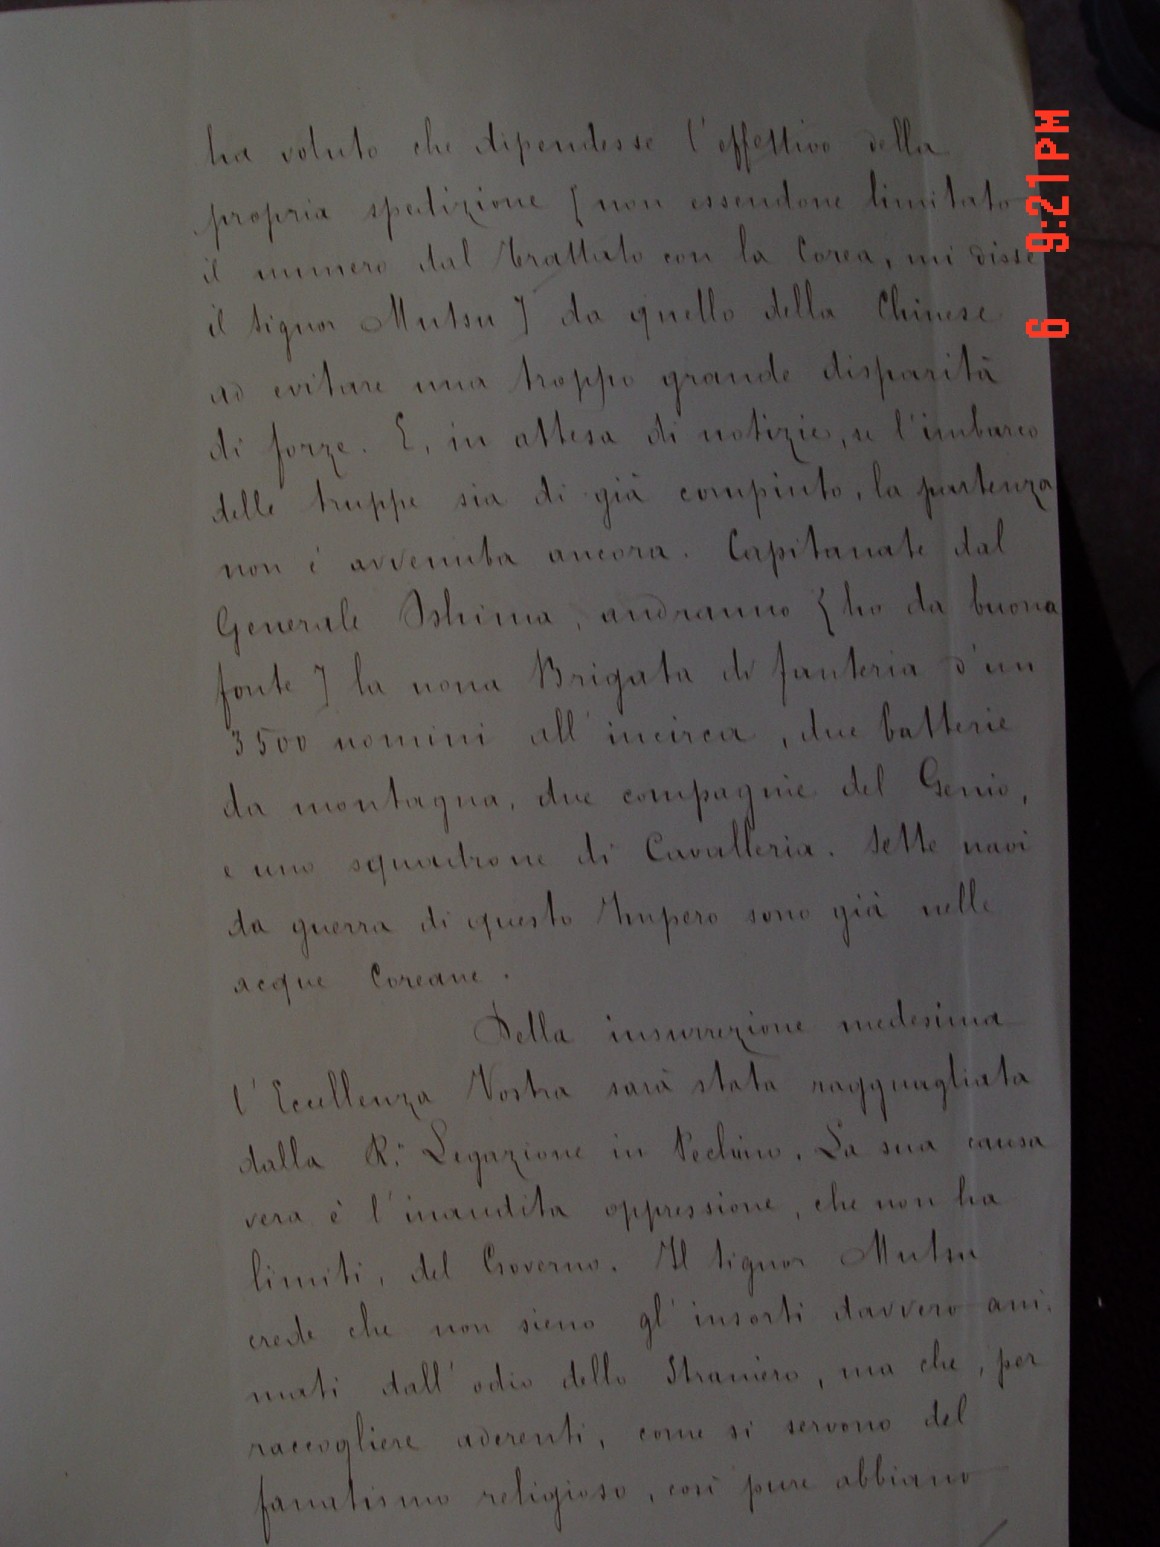 ha voluto che dipendesse l'effettivo della
propria spedizione [non essendone limitato
il numero dal Trattato con la Corea, mi disse
il signor Mutsu] da quello della Chinese
ad evitare una troppo grande disparità
di forze. E, in attesa di notizie, se l'imbarco
delle truppe sia di già compiuto, la partenza
non è avvenuta ancora. Capitanate dal
Generale Oshima, andranno [ho da buona
fonte] la nona Brigata di fanteria d'un
3500 uomini all'incirca, due batterie
da montagna, due compagnie del Genio,
e uno squadrone di Cavalleria. Sette navi
da guerra di questo Impero sono già nelle
acque Coreane.
Della insurrezione medesima
l'Eccellenza Vostra sarà stata ragguagliata
dalla R.ª Legazione in Pechino. La sua causa
vera è l'inaudita oppressione, che non ha
limiti, del Governo. Il signor Mutsu
crede che non sieno gl'insorti davvero ani-
mati dall'odio dello Straniero, ma che, per
raccogliere aderenti, come si servono del
fanatismo religioso, così pure abbiano
6 9:21PM